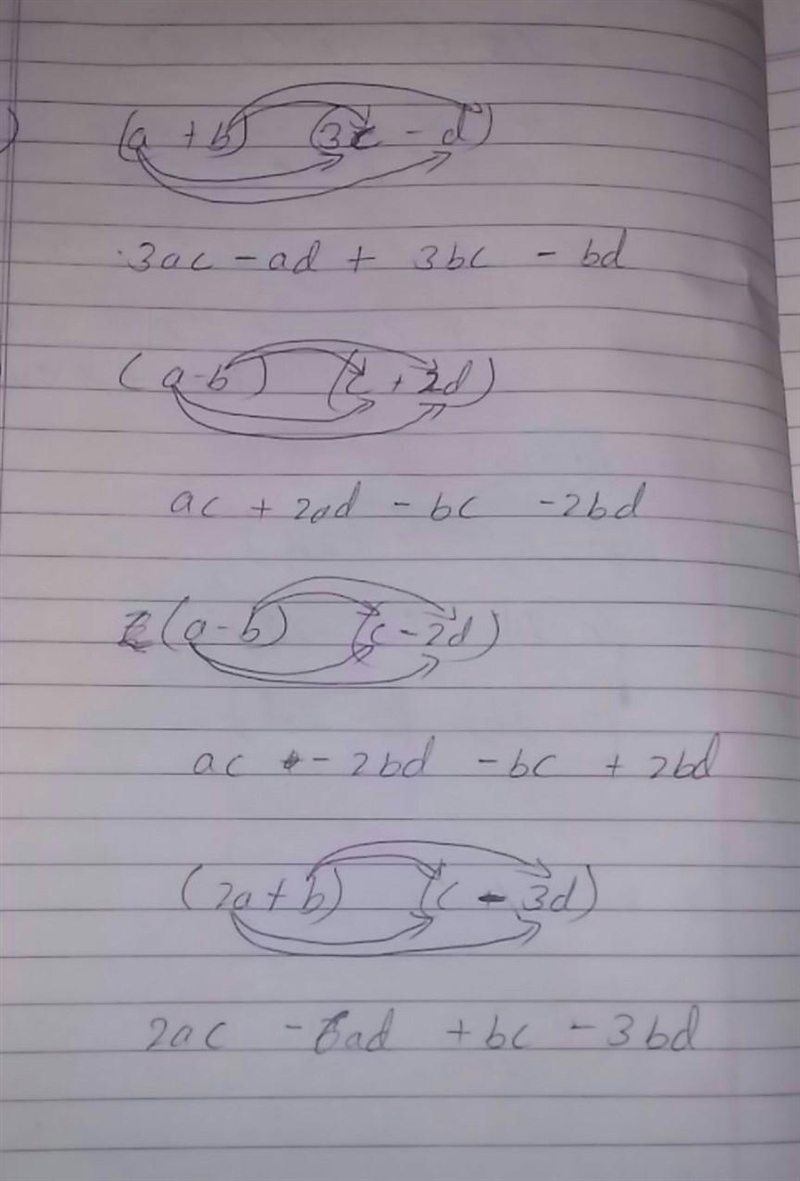 (a + b) (3c - d)
3ac - ad + 3bc - bd
(a-b) (c + 2d)
ac + 2ad - bc - 2bd
(a-b) (c - 2d)
ac - 2bd - bc + 2bd
(2a + b) (c - 3d)
2ac - 6ad + bc - 3bd